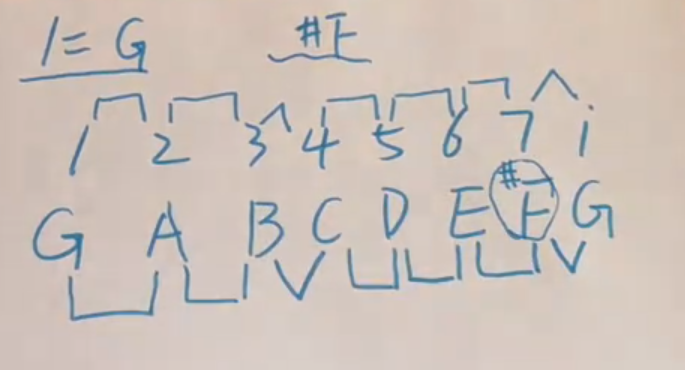 1=G #F
1 2 3 4 5 6 7 i
G A B C D E #F G